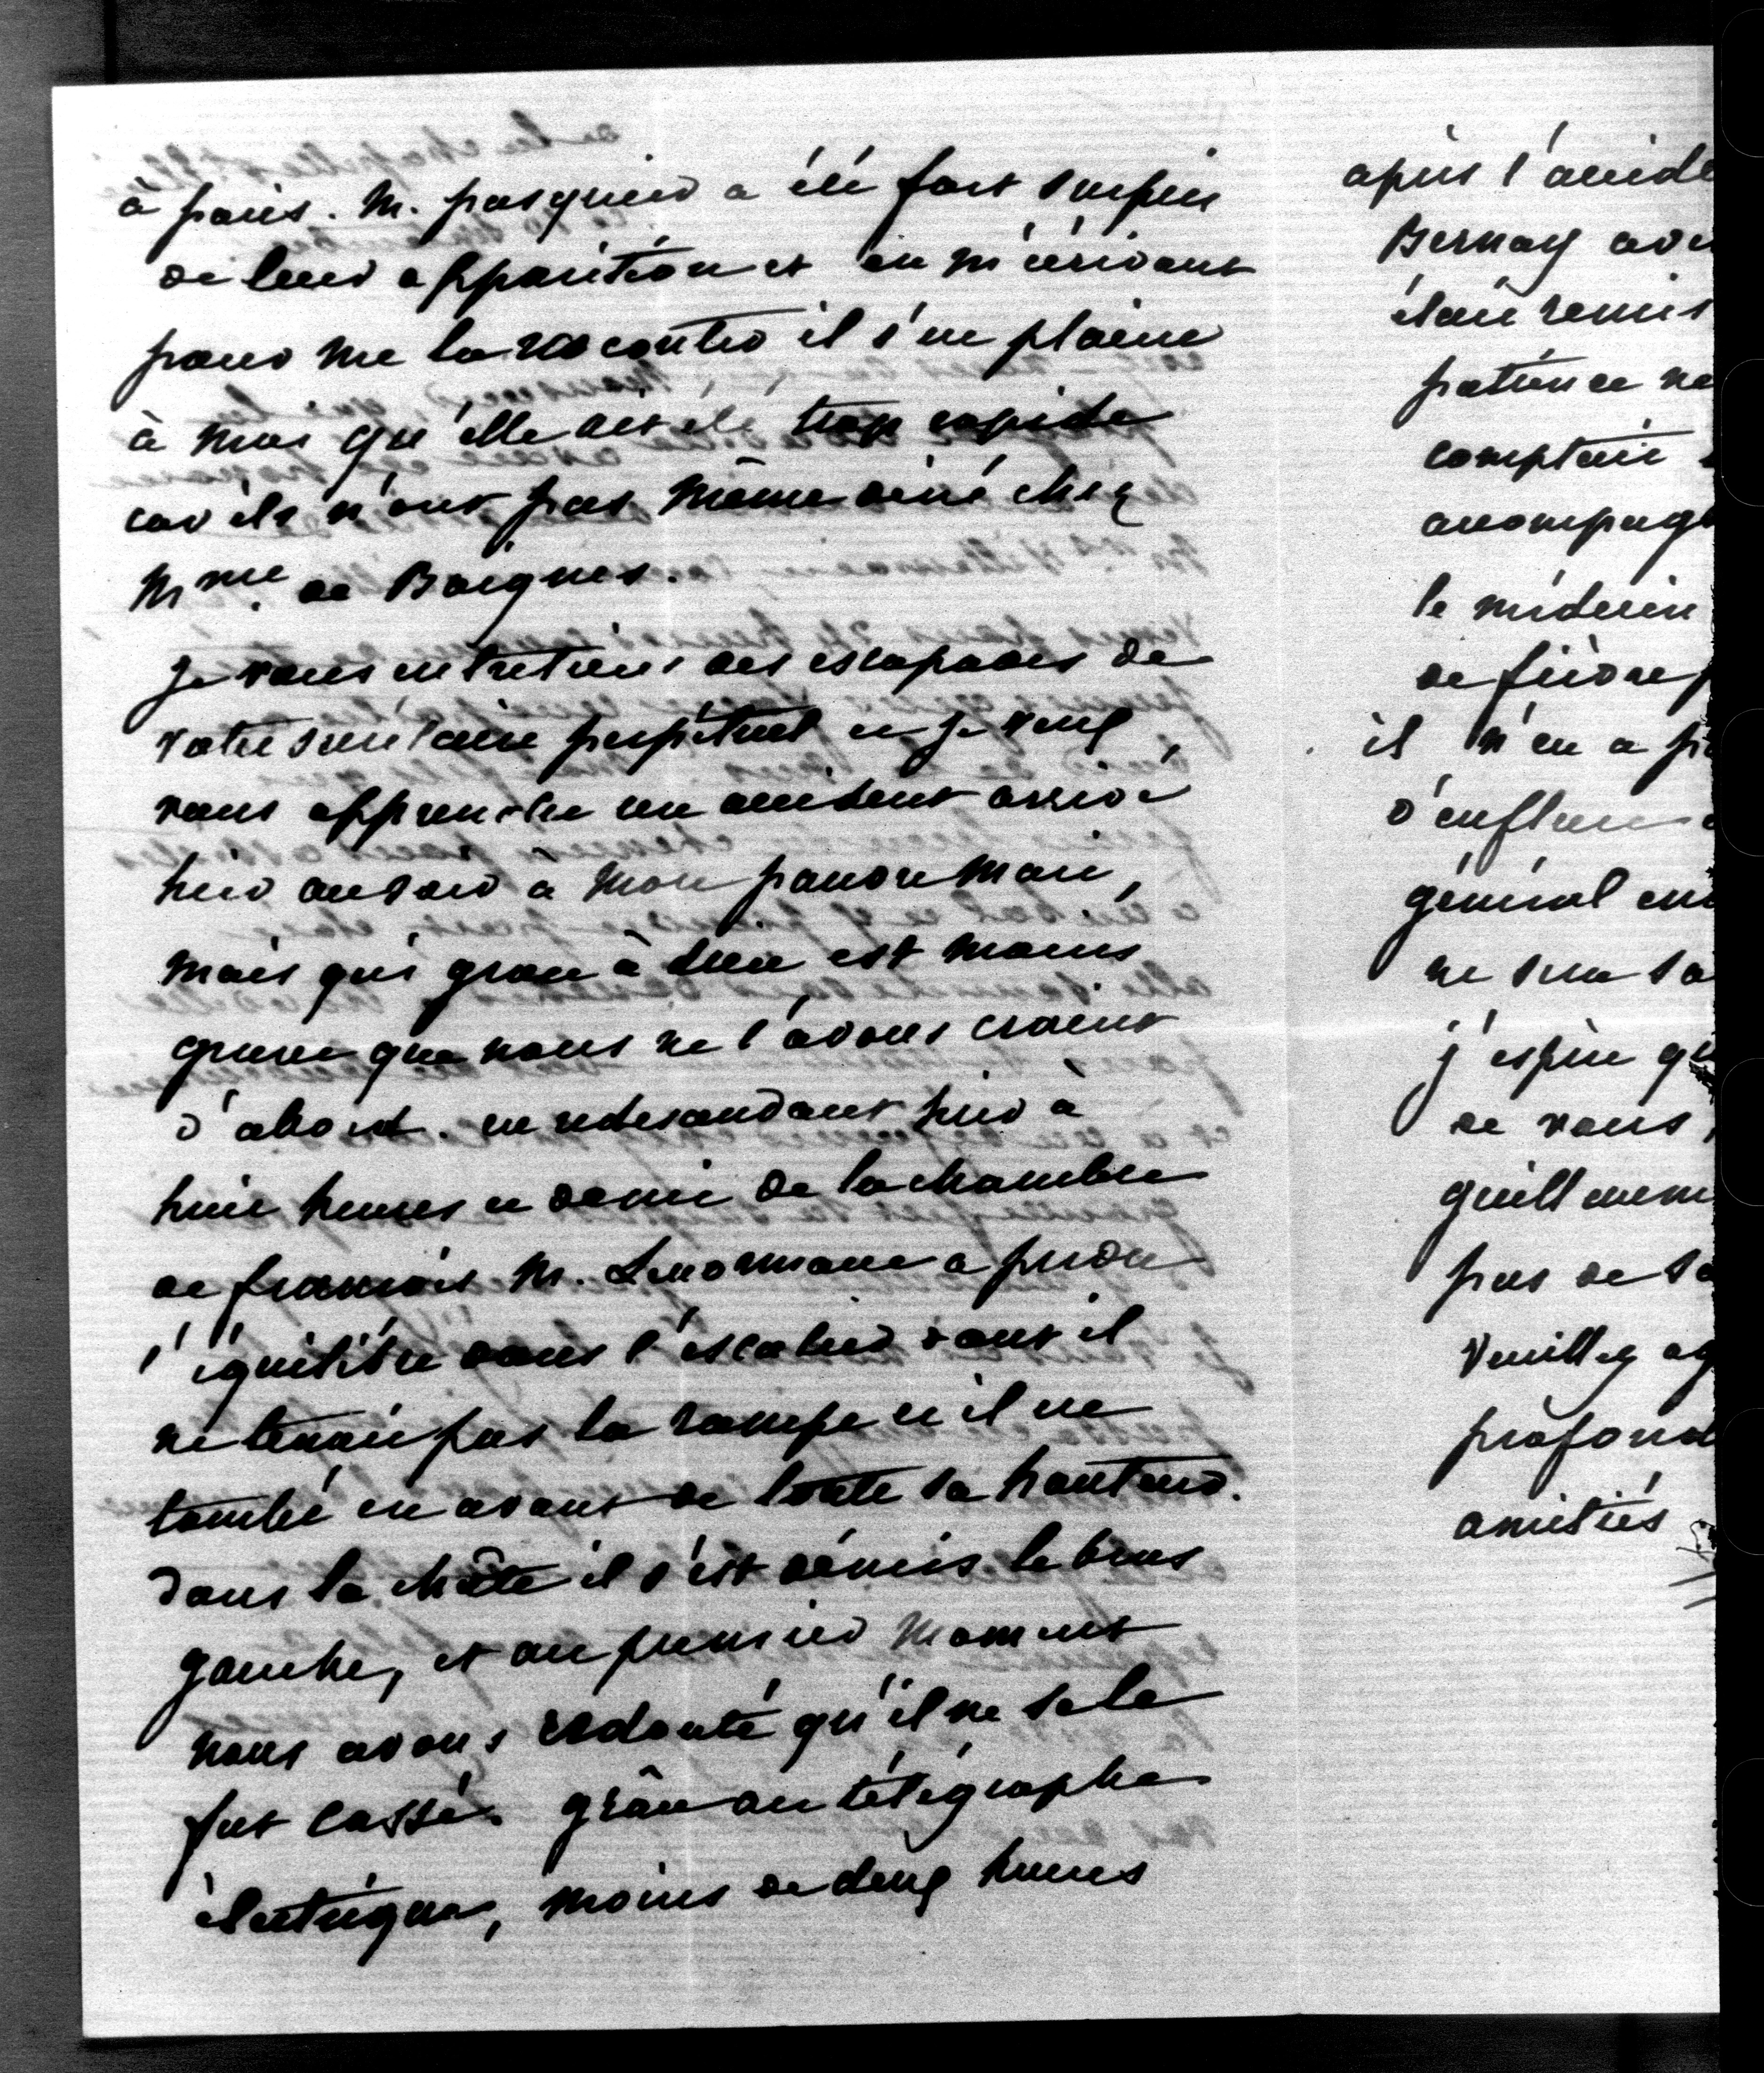 à paris. M. pasquier a été fort surpris
de leur apparition et en m'écrivant
pour me la raconter il s'en plaint
à moi qu'elle ait été trop rapide
car ils n'ont pas même diné chez
Mme. de Boignes.
je vous entretiens des escapades de
votre secrétaire perpétuel et je veux
vous apprendre un accident arrivé
hier au soir à mon pauvre mari,
mais qui grace à dieu est moins
grave que nous ne l'avons craint
d'abord. en redescendant hier à
huit heures et demie de la chambre
de françois M. Lenormant a perdu
l'équilibre dans l'escalier dont il
ne tenait pas la rampe et il est
tombé en avant de toute sa hauteur.
dans la chûte il s'est démis le bras
gauche, et au premier moment
nous avons redouté qu'il ne se le
fut cassé. grâce au télégraphe
électrique, moins de deux heures
après l'accide
Bernay ave
était remis
patience ne
comptait
accompagn
le médecin
de fièvre p
il n'en a p
d'enflure
général en
ne sera sa
j'espère qu
de vous,
guillemem
pas de sa
veuillez ag
profond
amitiés